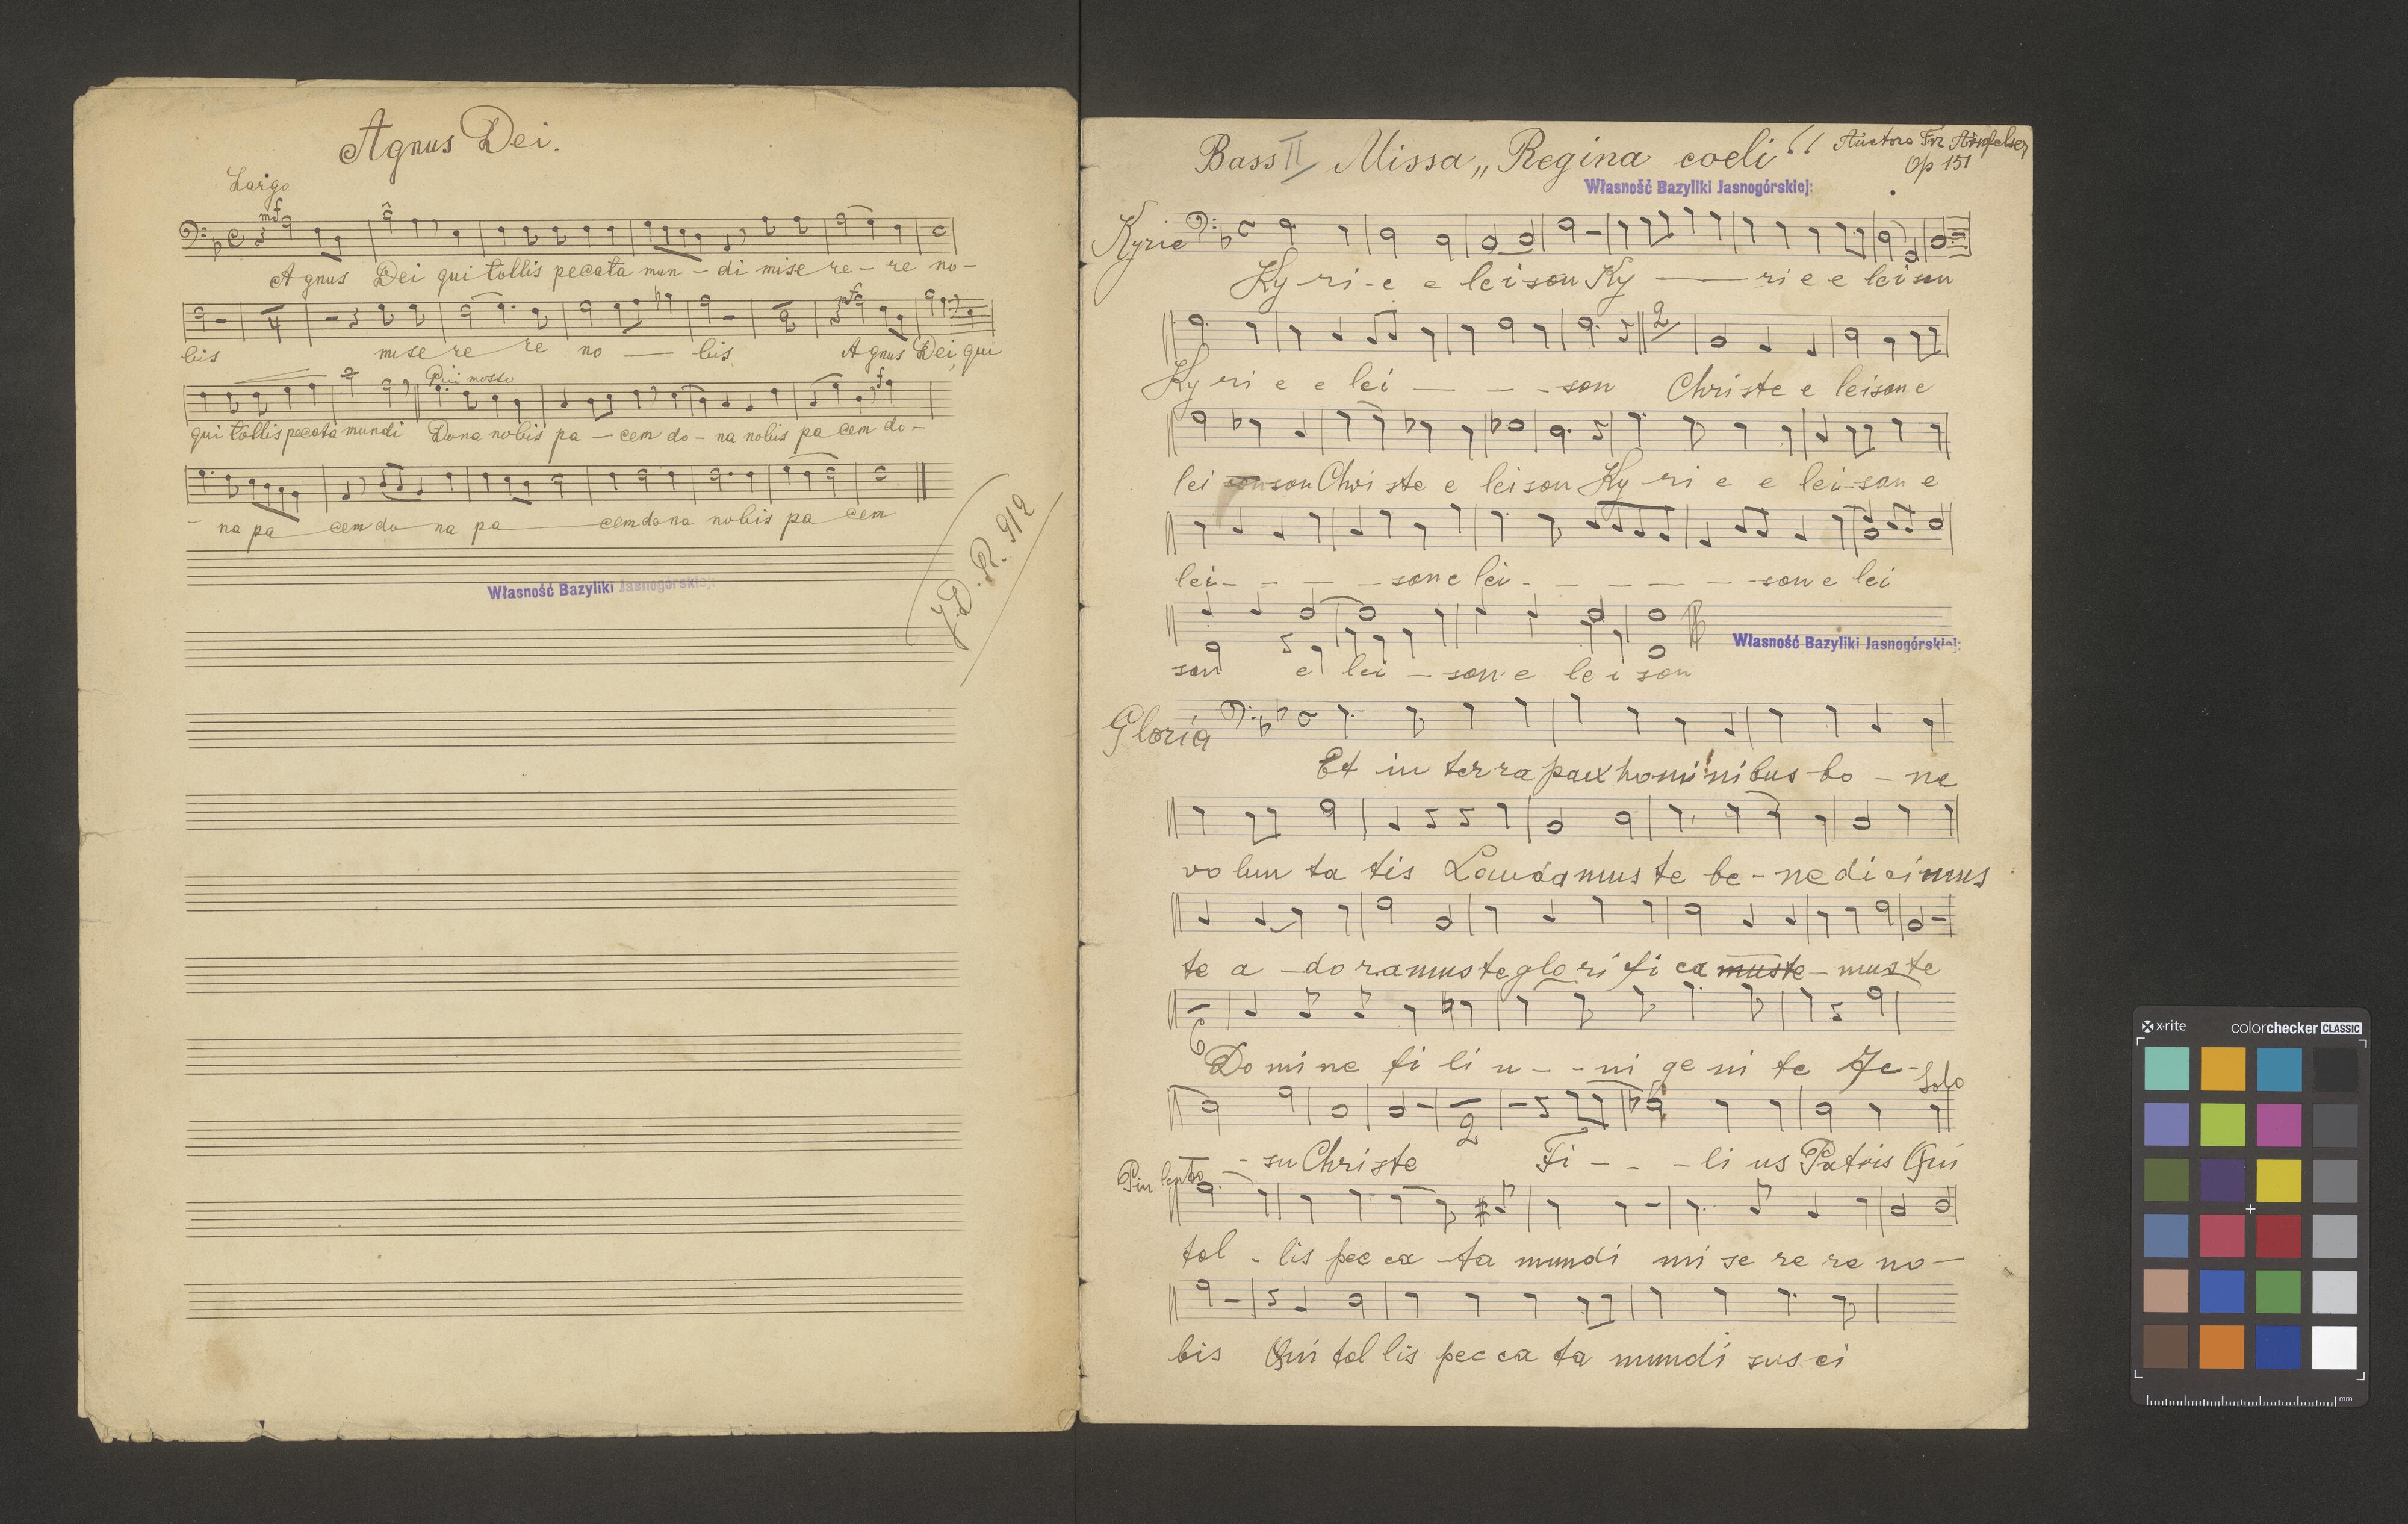 Agnus Dei.
Largo
mf
A gnus Dei qui tollis pecata mun - di mise re - re no -
bis mise re re no — bis A gnus Dei, qui
mf
Piu mosso
f
qui tollis pecata mundi Dona nobis pa - cem do - na nobis pa cem do -
- na pa cem do na pa cem do na nobis pa cem
J. D. R. 912
Własność Bazyliki Jasnogórskiej:
Bass II Missa „Regina coeli" Auctore Fr.
Op 151
Własność Bazyliki Jasnogórskiej:
Kyrie
Ky - ri - e e leison Ky — ri e e leison
2
Ky ri e e lei — — - son Christe e leison e
lei son Chri ste e leison Ky ri e e lei - son e
lei - - - - - son e lei - - - - - - son e lei
son e lei - son e le i son
Własność Bazyliki Jasnogórskiej:
Gloria
Et in terra pax hominibus bo - ne
vo lun ta tis Laudamus te be - ne di cimus
te a - doramus te glo ri fi ca muste - mus te
6
Do mi ne fi li u - - ni ge ni te Je -
Solo
2
- su Christe Fi - - - li us Patris Qui
Piu lento
tol - lis pec ca ta mundi mi se re re no -
bis Qui tol lis pec ca ta mundi sus ci
x-rite colorchecker CLASSIC
mm